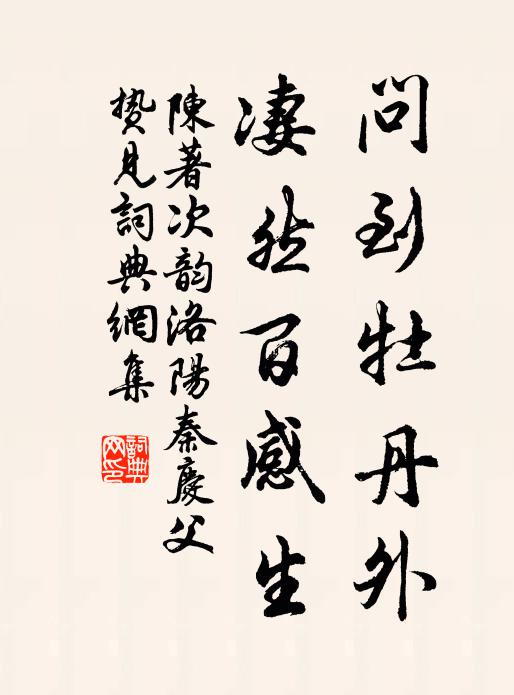 問到牡丹外
凄然百感生
陳著次韵洛陽秦慶父
贄見詞典網集
詞典网印